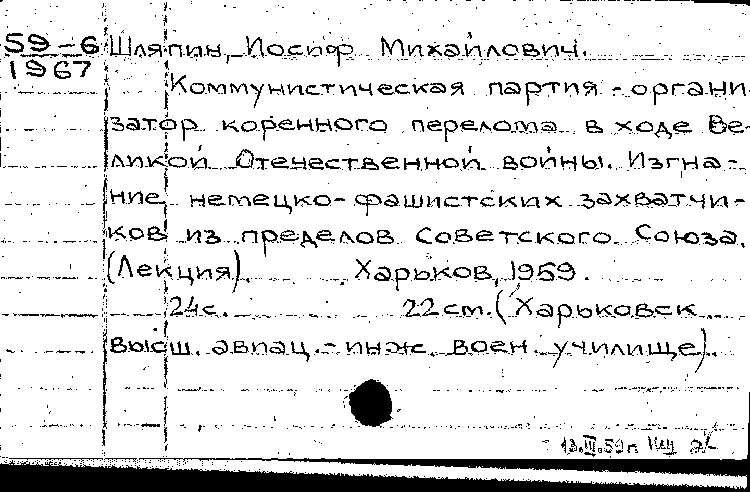 59-6 Шляпин, Иосиф Михайлович.
1967
Коммунистическая партия - органи
затор коренного перелома в ходе Ве-
ликой Отечественной войны. Изгна-
ние немецко-фашистских захватчи-
ков из пределов Советского Союза.
(Лекция). Харьков, 1959.
24с. 22 см. (Харьковск
высш. авиац.-инж. воен. училище).
13.III.59г